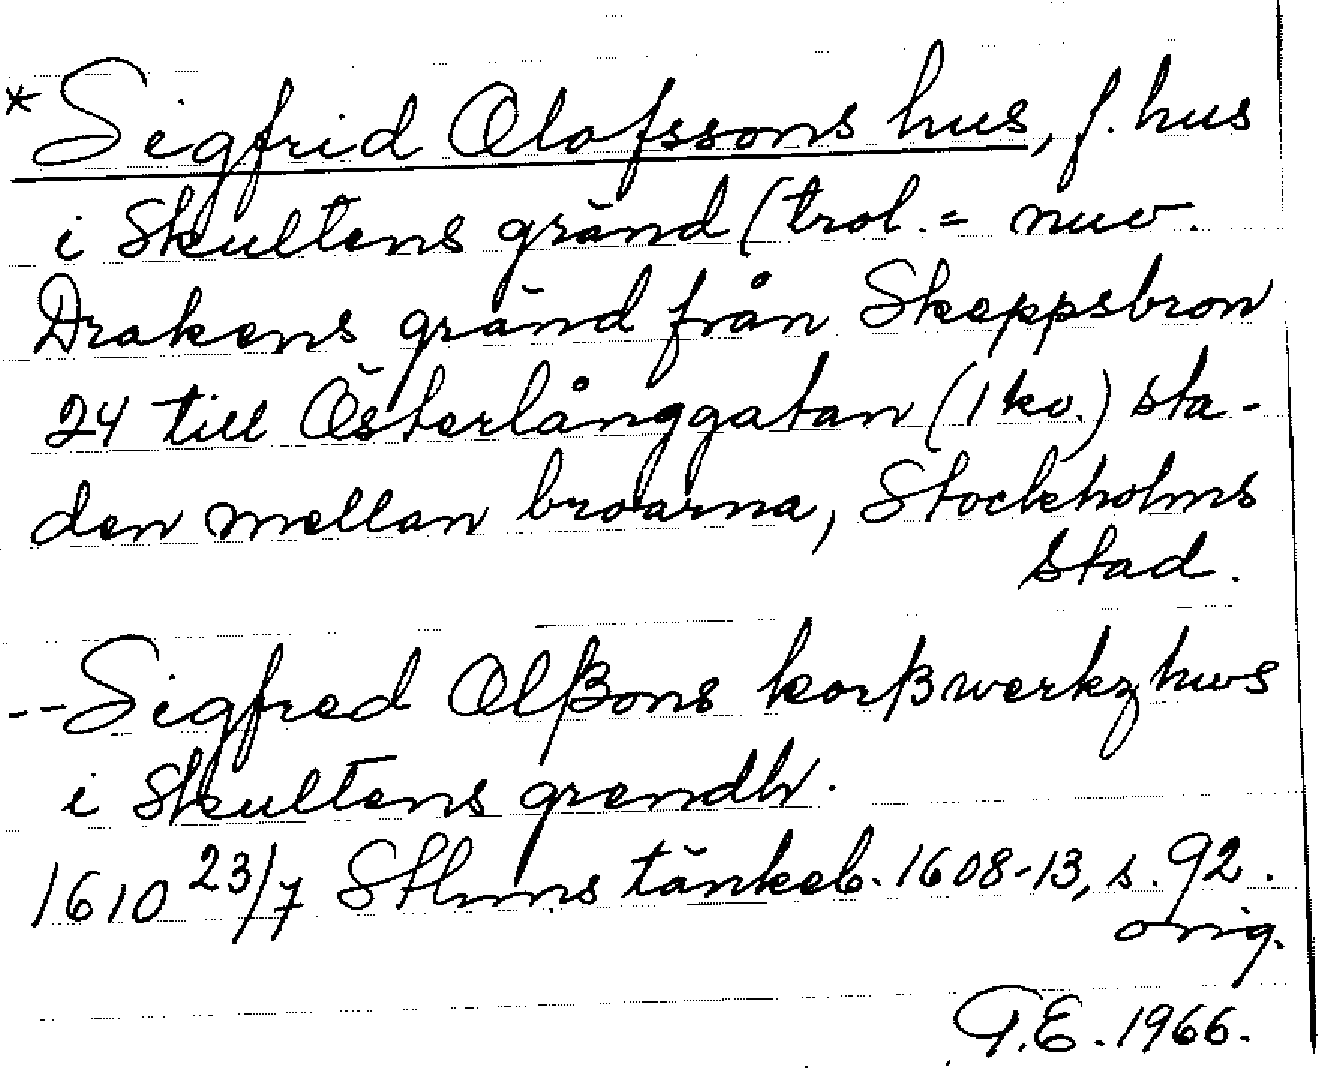 *Sigfrid Olofssons hus, f. hus
i Skultens gränd (trol. = nuv.
Drakens gränd från Skeppsbron
24 till Österlånggatan (1 kv.) sta-
den mellan broarna, Stockholms
stad.
--Sigfred Olßons korßwerkz hws
i Skultens grendh.
1610 23/7 Sthms tänkeb. 1608-13, s. 92.
orig.
G.E. 1966.